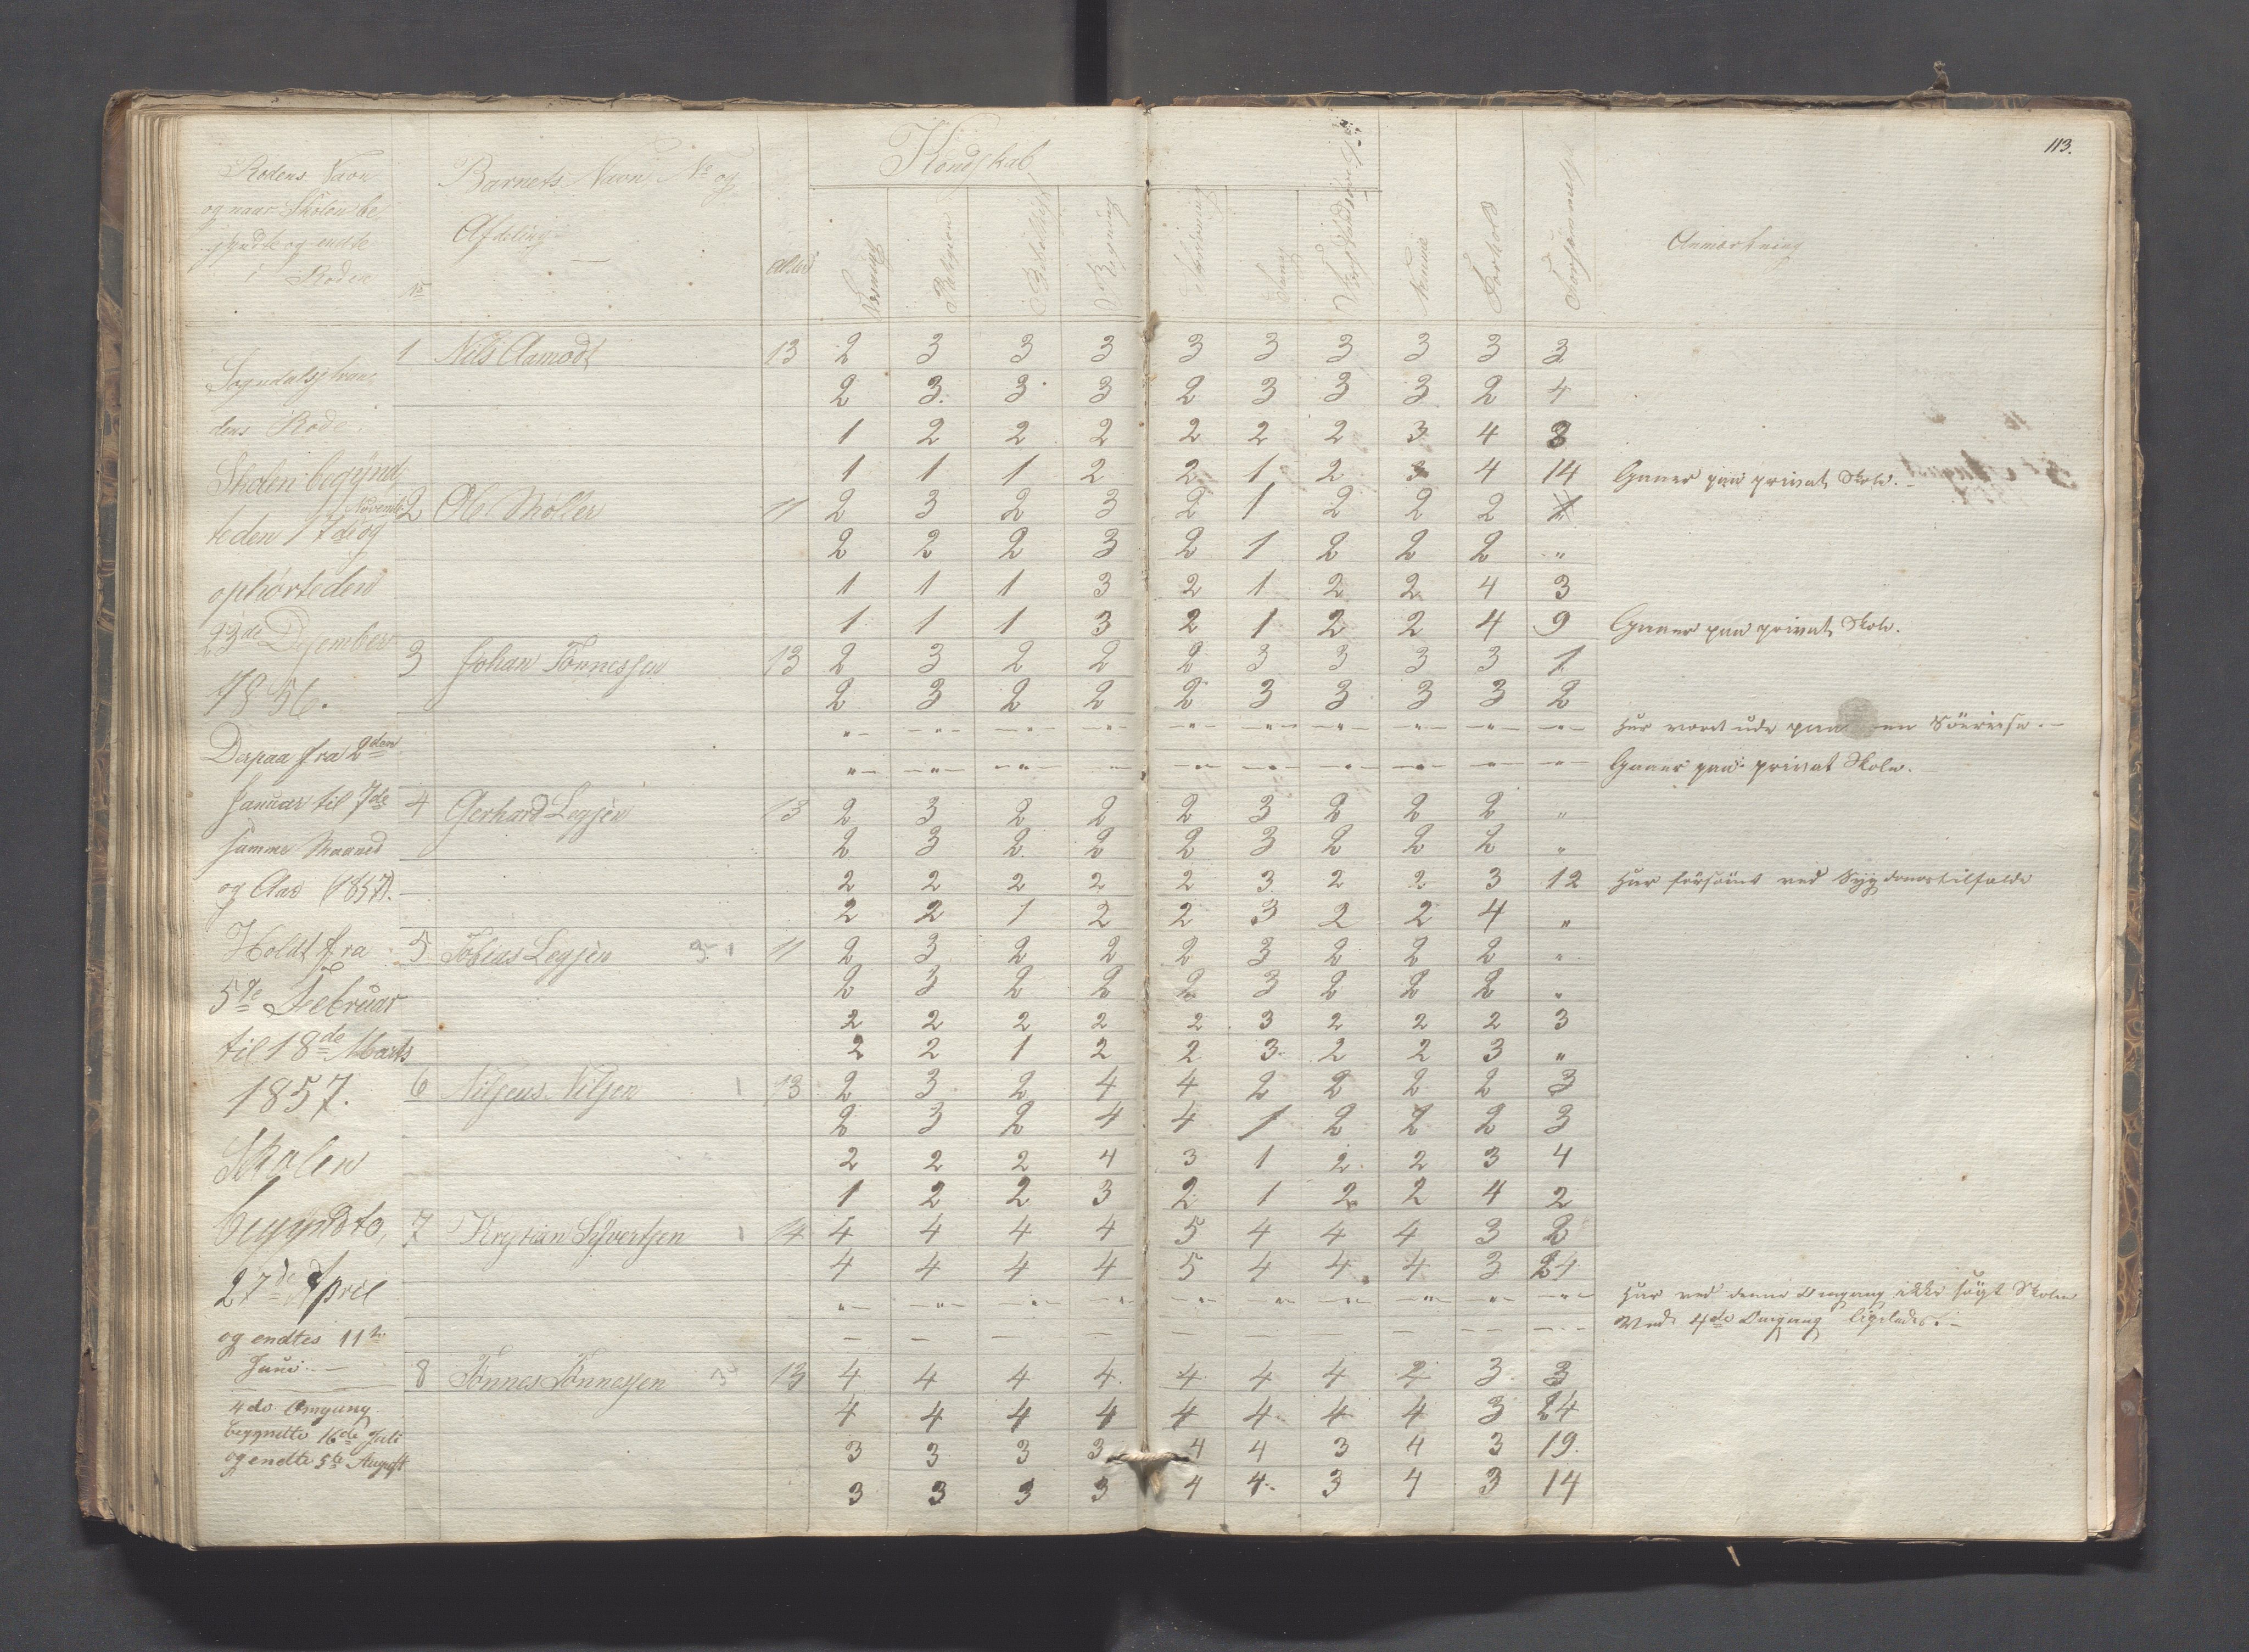 113.
Rodens Navn
og naar Skolen be-
gyndte og endte
i Roden
No
Barnets Navn No og
Afdeling
Alder
Kundskab
Læsning
Religion
Bibelhist
Regning
Skrivning
Sang
Nemme
Forhold
Forsømmelse
Anmærkning
Sogndalsstran-
dens Rode.
Skolen begynd
Novemb
te den 17de og
ophørte den
23de Desember
1856.
Derpaa fra 2den
Januar til 7de
samme Maaned
og Aar (1857).
Holdt fra
5te Februar
til 18de Marts
1857.
Skolen
begyndte,
27de April
og endtes 11te
Juni. —
4de Omgang
begyndte 16de Juli
og endte 5te August
1 Nils Aamodt 13 2 3 3 3 3 3 3 3 3 3
2 3. 3 3 2 3 3 3 2 4
1 2 2 2 2 2 2 3 4 3
1 1 1 2 2 1 2 3 4 14 Gaaer paa privat Skole.
2 Ole Møller 11 2 3 2 3 2 1 2 2 2 1
2 2 2 3 2 1 2 2 2 "
1 1 1 3 2 1 2 2 4 3
1 1 1 3 2 1 2 2 4 9 Gaaer paa privat Skole.
3 Johan Tønnessen 13 2 3 2 2 2 3 3 3 3 1
2 3 2 2 2 3 3 3 3 2
"– –"– –"– –"– –"– –"– –"– –"– –"– –"– Har været ude paa en Söereise. –
"– –"– –"– –"– –"– –"– –"– –"– –"– –"– Gaaer paa privat Skole. –
4 Gerhard Legsen 13 2 3 2 2 2 3 2 2 2 "
2 3 2 2 2 3 2 2 2 "
2 2 2 2 2 3 2 2 3 12 Har försömt ved Sygdomstilfælde
2 2 1 2 2 3 2 2 4 "
5 Tobias Legsen 3 1 11 2 3 2 2 2 3 2 2 2 "
2 3 2 2 2 3 2 2 2 "
2 2 2 2 2 3 2 2 2 3
2 2 1 2 2 3 2 2 3 "
6 Nilseus Nilsen 1 13 2 3 2 4 4 2 2 2 2 3
2 3 2 4 4 1 2 2 2 3
2 2 2 4 3 1 2 2 3 4
1 2 2 3 2 1 2 2 4 2
7 Krystian Syvertsen 1 14 4 4 4 4 5 4 4 4 3 2
4 4 4 4 5 4 4 4 3 24
"– –"– –"– –"– –"– –"– –"– –"– –"– –"– Har ved denne Omgang ikke sögt Skolen
– – – – – – – – – – Ved 4de Omgang ligeledes. –
8 Tønnes Tønnessen 3 13 4 4 4 4. 4 4 4 4 3 3
4 4 4 4 4 4 4 4 3 24
3 3 3 3 4 4 3 4 3 19.
3 3 3 3 4 4 3 4 3 14